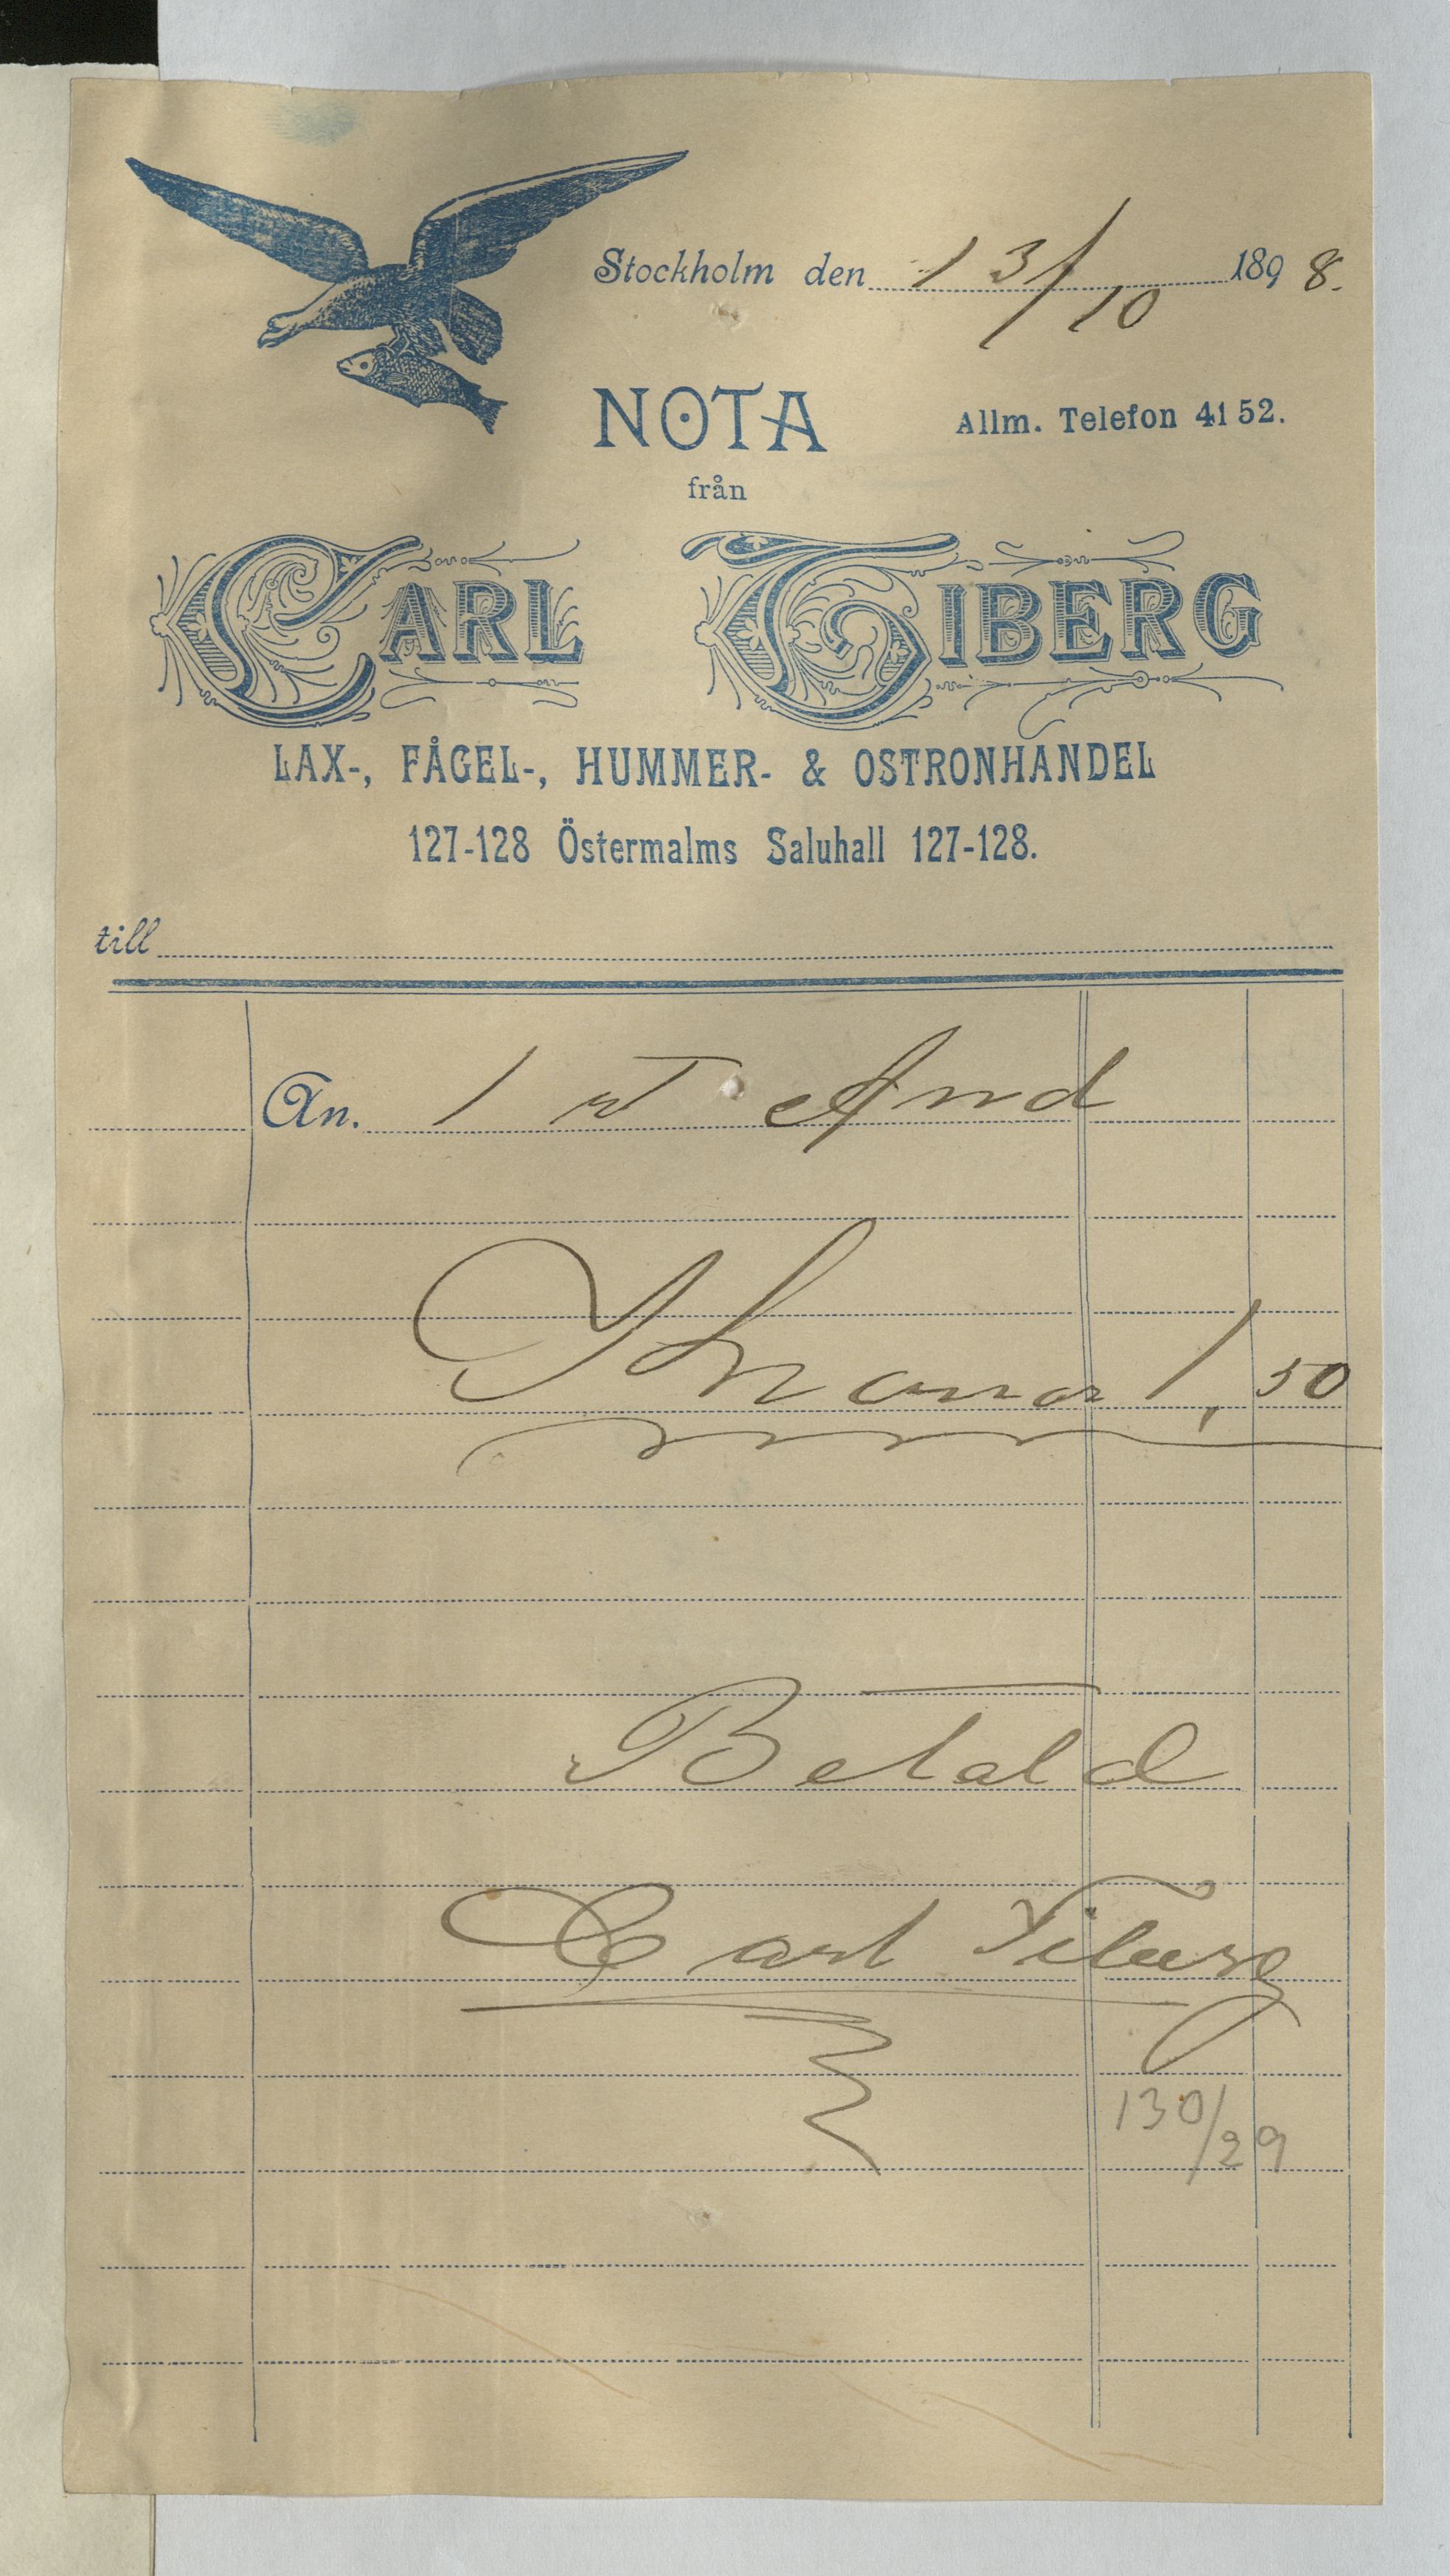 Stockholm den 13/10 1898.
NOTA
Allm. Telefon 4152.
från
CARL TIBERG
LAX-, FÅGEL-, HUMMER- & OSTRONHANDEL
127-128 Östermalms Saluhall 127-128.
till
An. 1 st And
Kronor 1,50
Betald
Carl Tiberg
130/29